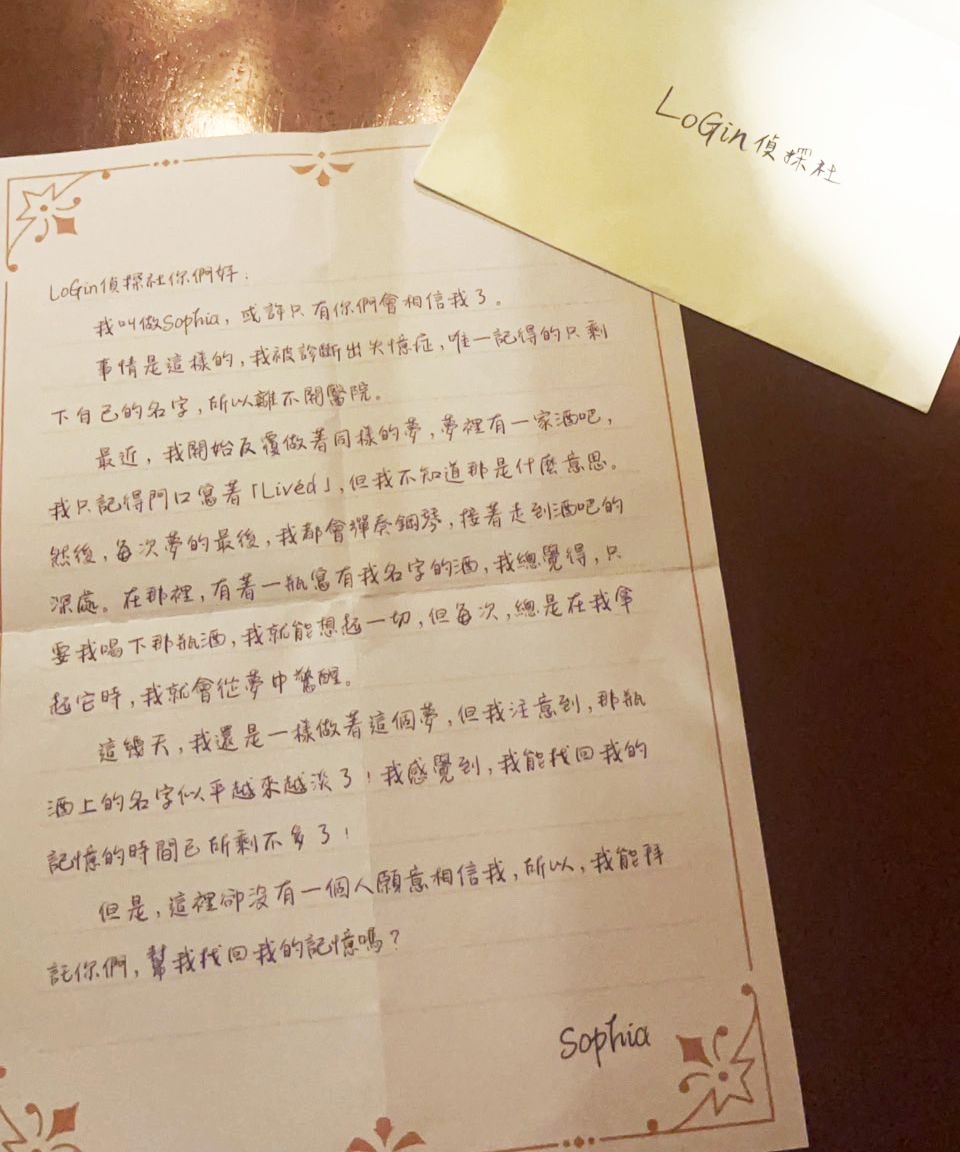 LoGin偵探社
LoGin偵探社你們好：
我叫做Sophia，或許只有你們會相信我了。
事情是這樣的，我被診斷出失憶症，唯一記得的只剩
下自己的名字，所以離不開醫院。
最近，我開始反覆做著同樣的夢，夢裡有一家酒吧，
我只記得門口寫著「Livéd」，但我不知道那是什麼意思。
然後，每次夢的最後，我都會彈奏鋼琴，接著走到酒吧的
深處。在那裡，有著一瓶寫有我名字的酒，我總覺得，只
要我喝下那瓶酒，我就能想起一切，但每次，總是在我拿
起它時，我就會從夢中驚醒。
這幾天，我還是一樣做著這個夢，但我注意到，那瓶
酒上的名字似乎越來越淡了！我感覺到，我能找回我的
記憶的時間已所剩不多了！
但是，這裡卻沒有一個人願意相信我，所以，我能拜
託你們，幫我找回我的記憶嗎？
Sophia